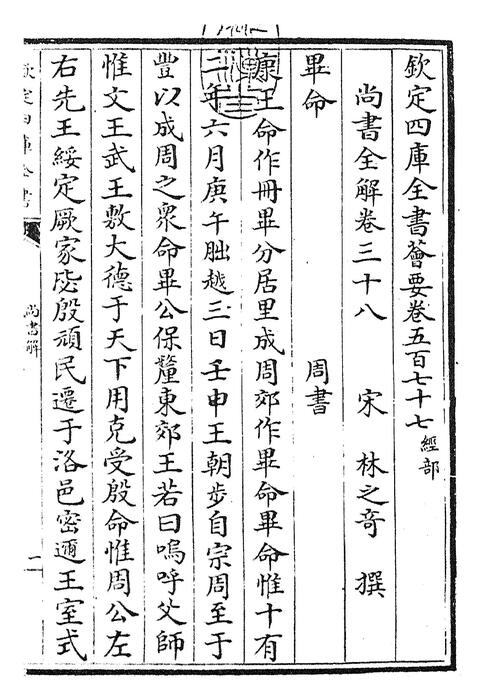 欽定四庫全書薈要卷五百七十七 經部
尚書全解卷三十八 宋 林之奇 撰
畢命 周書
康王命作冊畢分居里成周郊作畢命畢命惟十有
二年六月庚午朏越三日壬申王朝步自宗周至于
豐以成周之衆命畢公保釐東郊王若曰嗚呼父師
惟文王武王敷大德于天下用克受殷命惟周公左
右先王綏定厥家毖殷頑民遷于洛邑密邇王室式
欽定四庫全書
尚書解
一